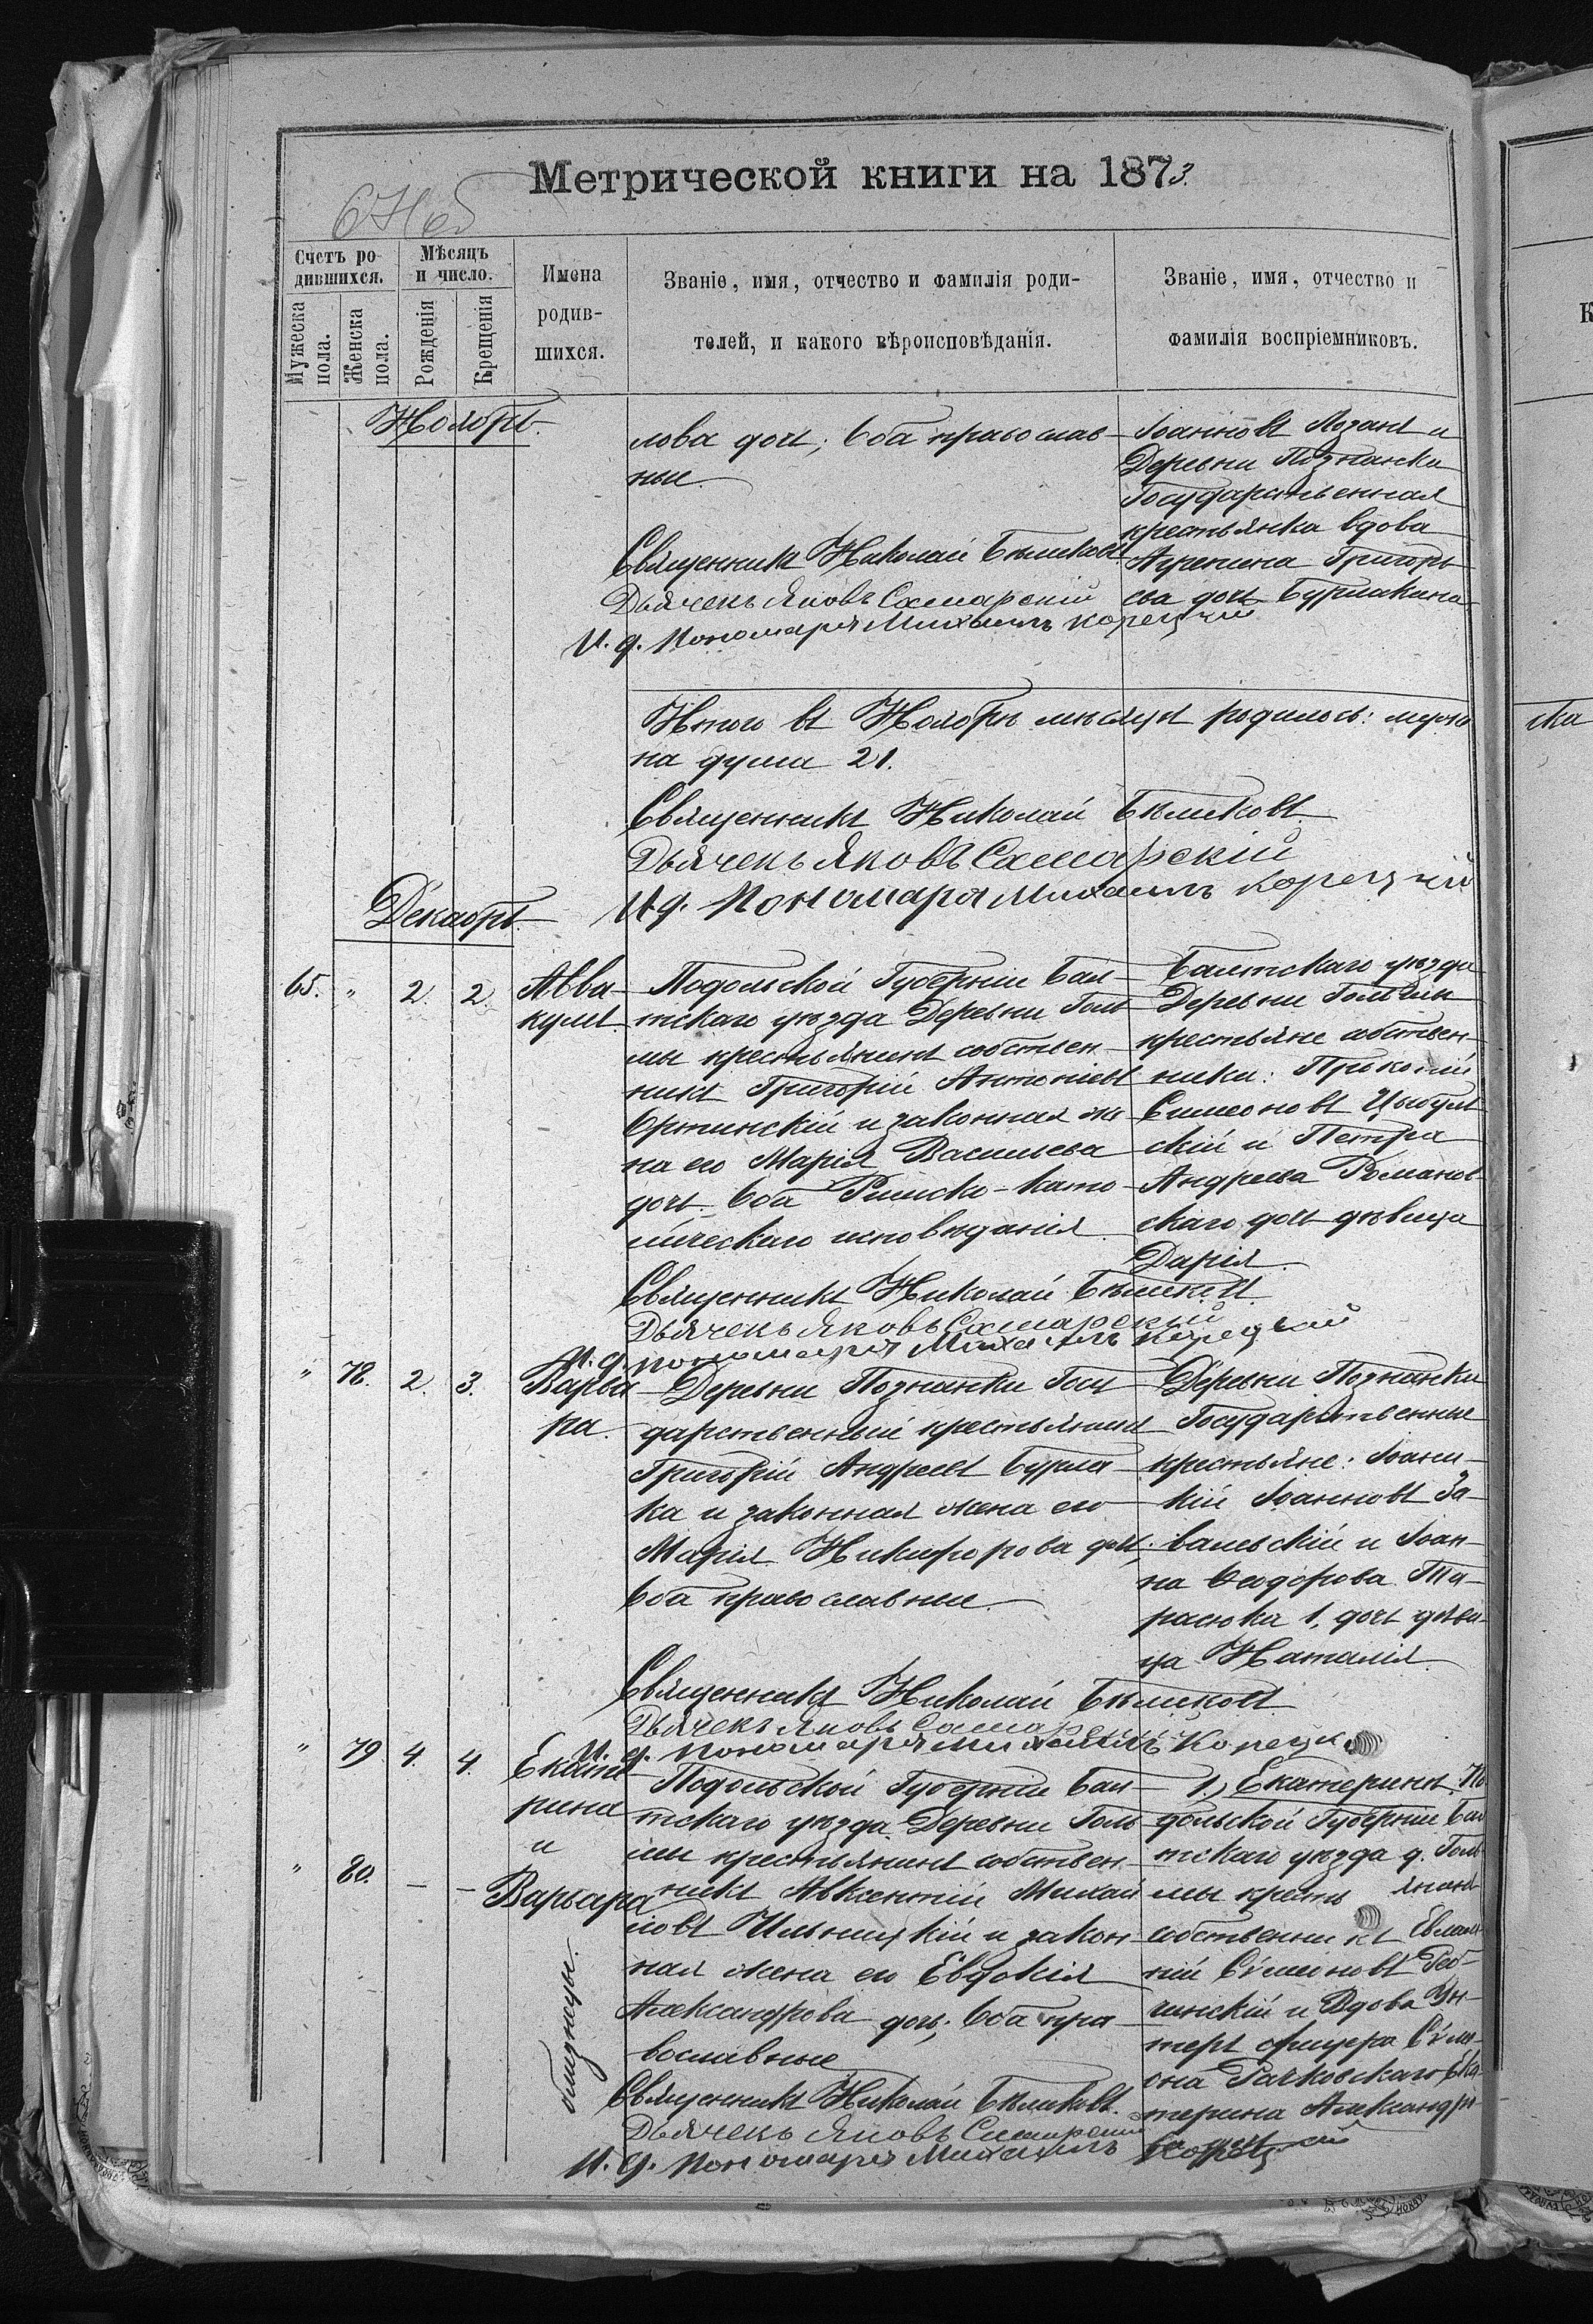 Метрической книги на 1873.
Счетъ ро-
дившихся.
Мѣсяцъ
и число.
Имена
родив-
шихся.
Званіе, имя, отчество и фамилія роди-
телей, и какого вѣроисповѣданія.
Званіе, имя, отчество и
фамилія воспріемниковъ.
Мужеска
пола.
Женска
пола.
Рожденія
Крещенія
Ноябрь.
лова дочь; Оба православ-
ные.
Священникъ Николай Бѣликовъ
Дьячекъ Яковъ Самарскій
И. д. Пономаря Михаилъ Корецкій
Іоанновъ Лозанъ и
Деревни Познанки
Государственная
крестьянка вдова
Агрепина Григорь-
ева дочь Бурлакина
Итого въ Ноябрѣ мѣсяцѣ родилось: мужe
на душа 21.
Священникъ Николай Бѣликовъ.
Дьячекъ Яковъ Самарскій
И. д. Пономаря Михаилъ Корецкій
Декабрь.
65. " 2. 2.
Авва-
кумъ
Подольской Губерніи Бал-
тскаго уѣзда Деревни Голь-
мы крестьянинъ собствен-
никъ Григорій Антоніевъ
Ортинскій и законная же-
на его Марія Васильева
дочь. Оба Римско-като-
лическаго исповѣданія.
Священникъ Николай Бѣликовъ.
Дьячекъ Яковъ Самарскій
И. д. пономаря Михаилъ Корецкій
Балтскаго уѣзда
Деревни Гольмы
крестьяне собствен-
ники: Прокопій
Симеоновъ Цыбуль
скій и Петра
Андреева Романов-
скаго дочь дѣвица
Дарія.
" 78. 2. 3.
Варва-
ра.
Деревни Познанки Госу-
дарственный крестьянинъ
Григорій Андреевъ Бурла-
ка и законная жена его
Марія Никифорова дочь,
Оба православные.
Священникъ Николай Бѣликовъ
Дьячекъ Яковъ Самарскій
И. д. пономаря Михаилъ Корецкій
Деревни Познанки
Государственные
крестьяне: Іоани-
кій Іоанновъ За-
вальскій и Іоан-
на Ѳеодорова Та-
расюка 1, дочь дѣви-
ца Наталія.
" 79. 4. 4.
Екате-
рина
и
" 80. — —
Варвара
близнецы.
Подольской Губерніи Бал-
тскаго уѣзда Деревни Голь-
мы крестьянинъ собствен-
никъ Авксентій Михай-
ловъ Ильницкій и закон-
ная жена его Евдокія
Александрова дочь; Оба пра-
вославные
Священникъ Николай Бѣликовъ.
Дьячекъ Яковъ Самарскій
И. д. Пономаря Михаилъ Корецкій
1, Екатерины. По
дольской Губерніи Бал
тскаго уѣзда д. Голь
мы крестьянинъ
собственникъ
ній Сѵмеоновъ
чинскій и Вдова Ун-
теръ офицера Сѵме-
она Рачковскаго Ека-
терина Александро-
ска